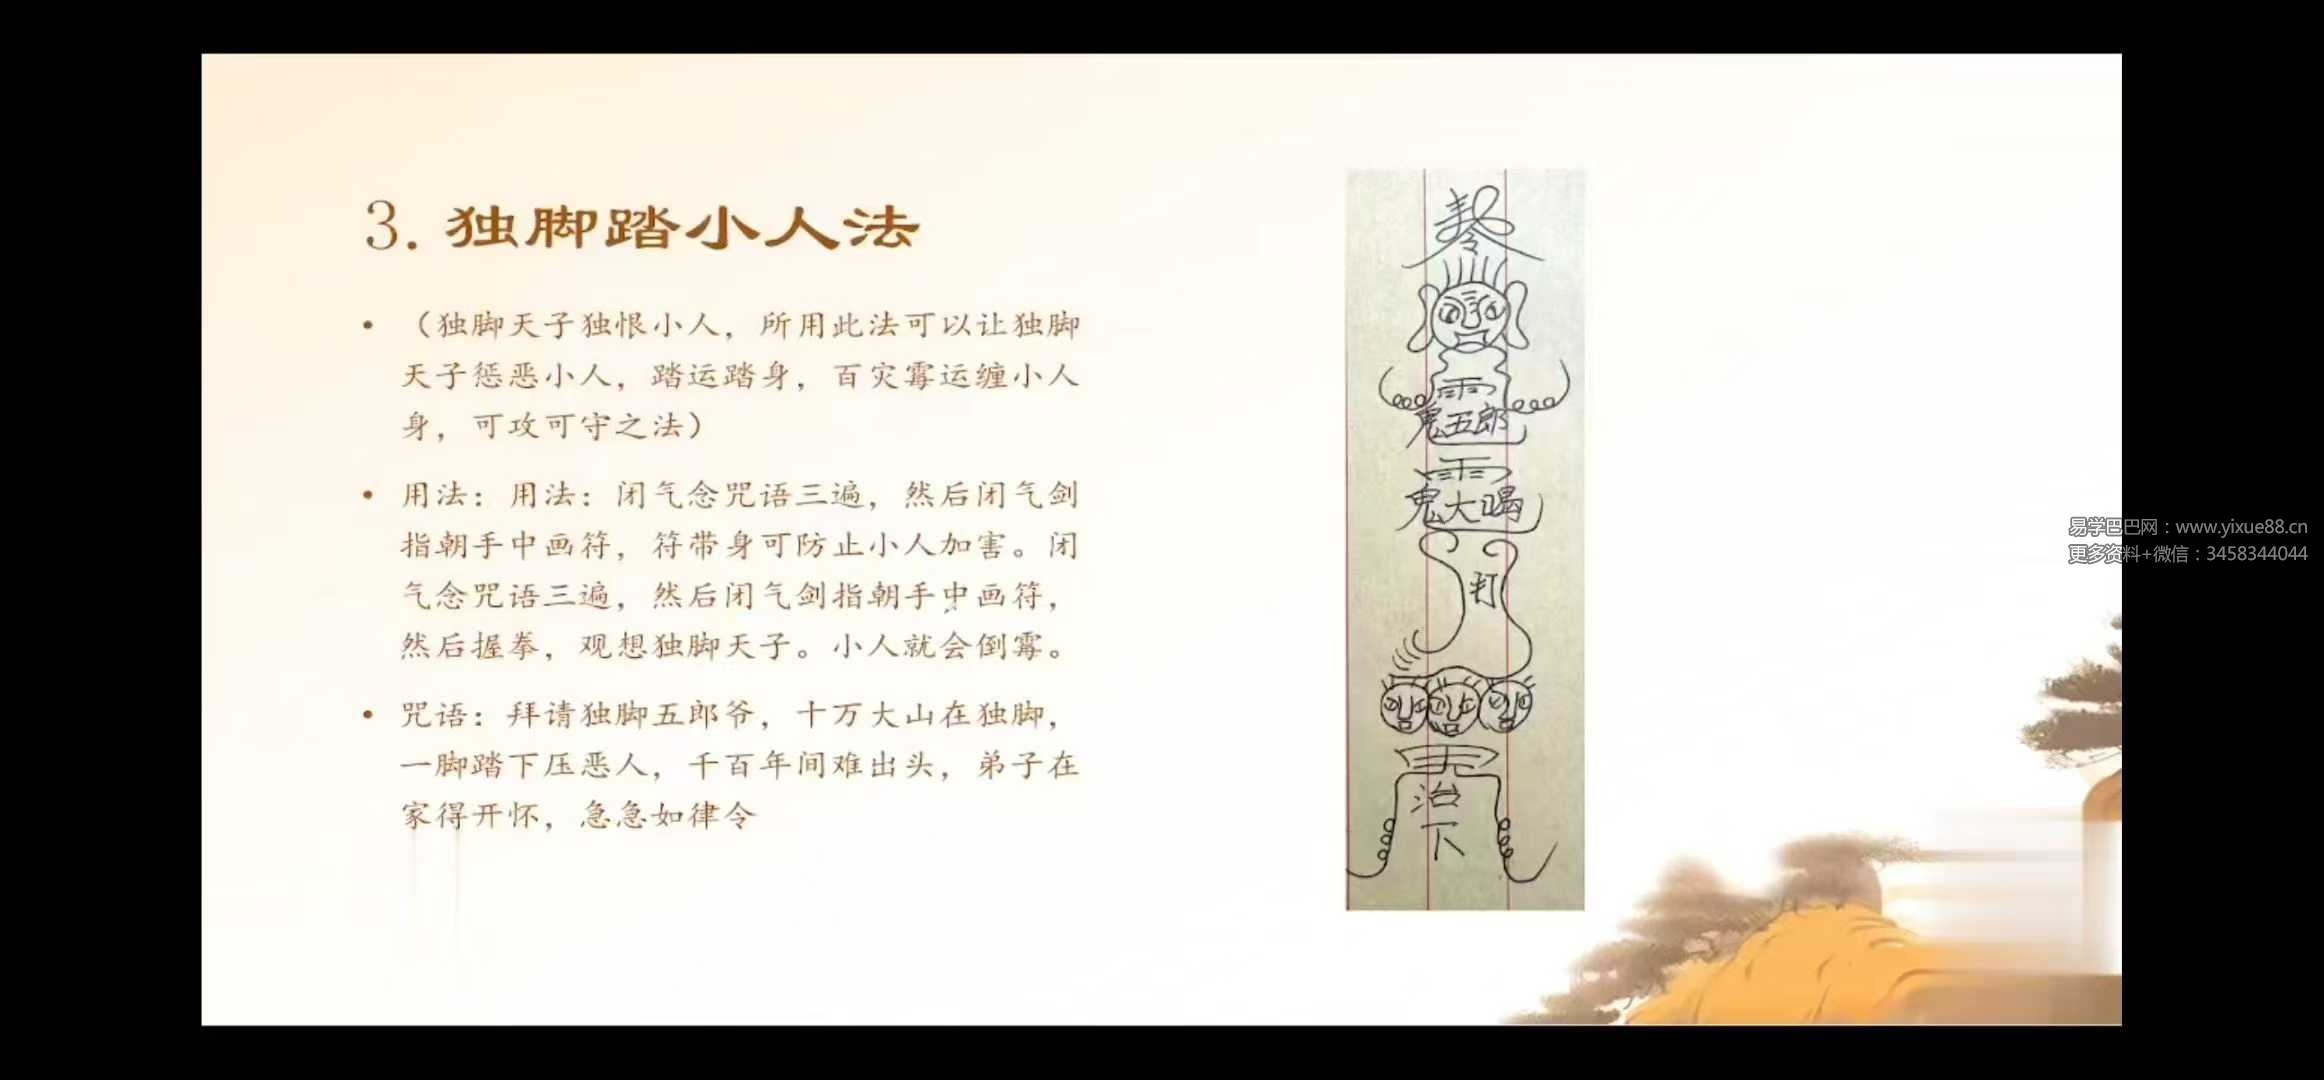 3. 独脚踏小人法
• （独脚天子独恨小人，所用此法可以让独脚
天子惩恶小人，踏运踏身，百灾霉运缠小人
身，可攻可守之法）
• 用法：用法：闭气念咒语三遍，然后闭气剑
指朝手中画符，符带身可防止小人加害。闭
气念咒语三遍，然后闭气剑指朝手中画符，
然后握拳，观想独脚天子。小人就会倒霉。
• 咒语：拜请独脚五郎爷，十万大山在独脚，
一脚踏下压恶人，千百年间难出头，弟子在
家得开怀，急急如律令
雨
鬼五郎
雨
鬼大喝
打
治
下
易学巴巴网：www.yixue88.cn
更多资料+微信：3458344044